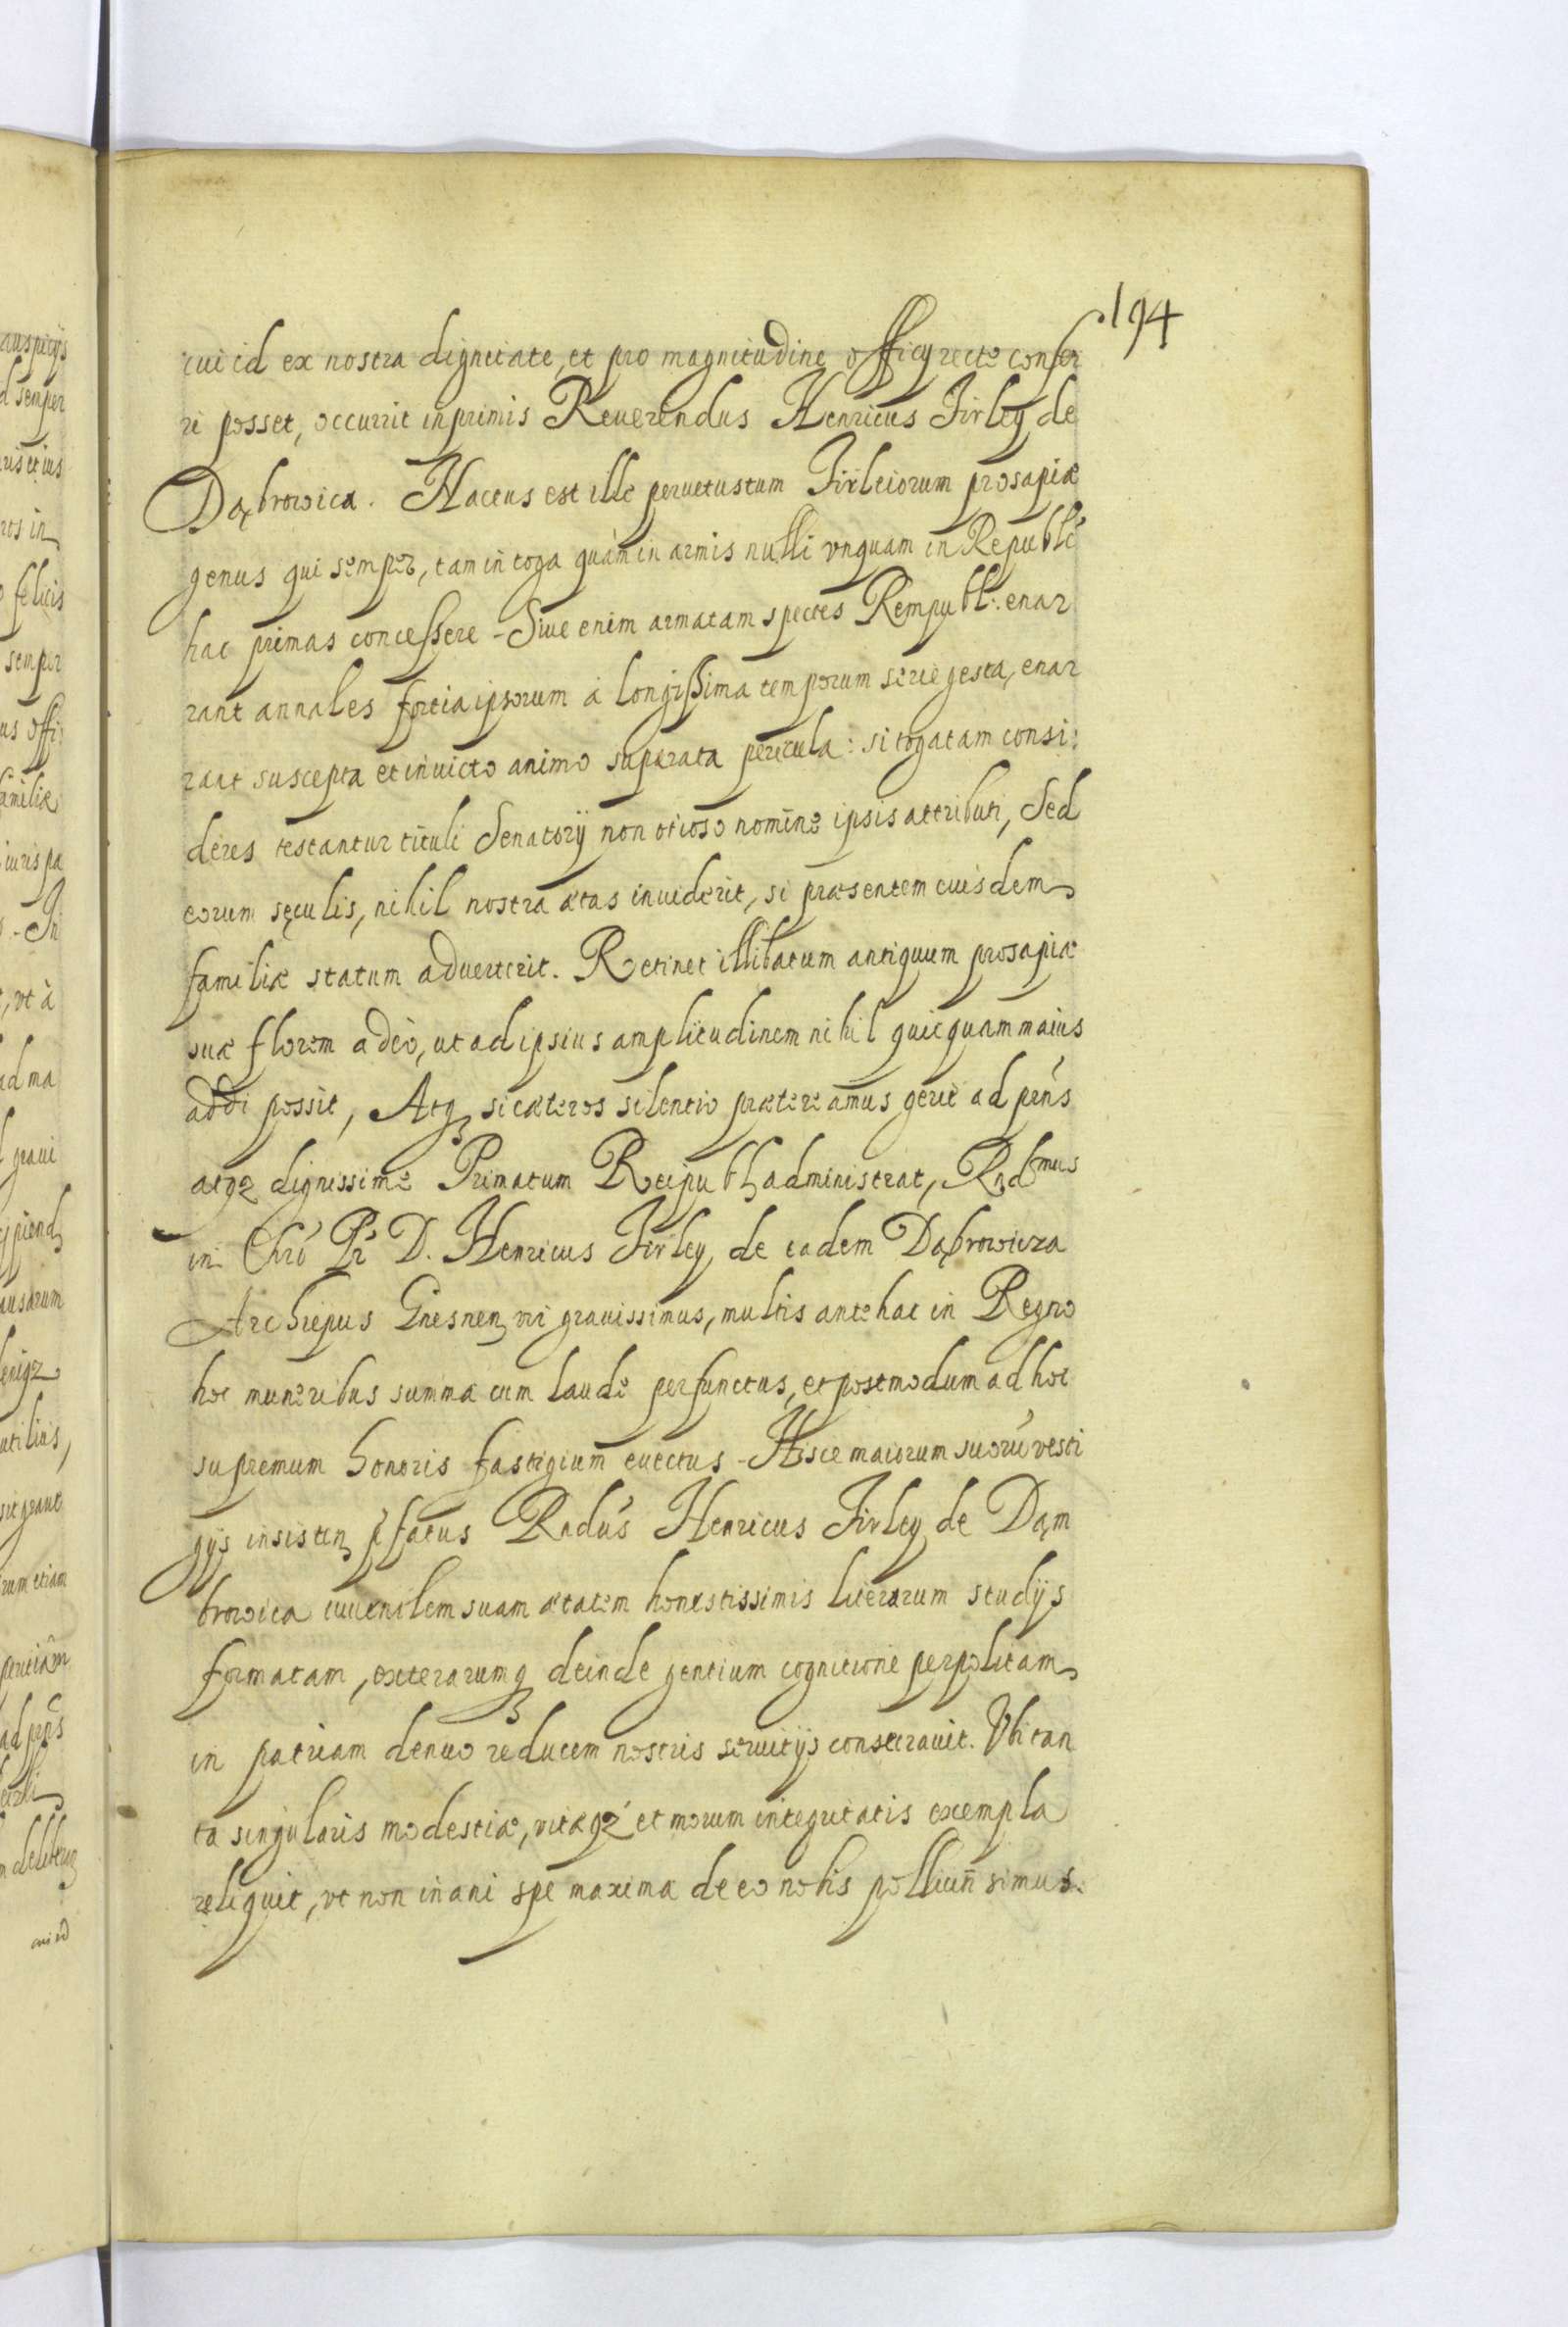 194
cui id ex nostra dignitate, et pro magnitudine officij recte confer
ri posset, occurrit inprimis Reuerendus Henricus Firley de
Dąbrowica. Nactus est ille peruetustum Firleiorum prosapiæ
genus qui semper, tam in toga quàm in armis nulli vnquam in Republ
hac primas concessere - Siue enim armatam spectes Rempubl: enar
rant annales fortia ipsorum à longissima temporum serie gesta, enar
rant suscepta et inuicto animo superata pericula: si togatam consi:
deres testantur tituli Senatorij non otioso nomine ipsis attributi, Sed
eorum sęculis, nihil nostra ætas inuiderit, si præsentem euisdem
familiæ statum aduerterit. Retinet illibatum antiquum prosapiæ
suæ florem adeò, ut ad ipsius amplitudinem nihil quicquam maius
addi possit, Atq si cæteros silentio prætereamus gerit ad prńs
atqz dignissime Primatum Reipubl administrat, Rndmus
in Chrō Pr D. Henricus Firley, de eadem Dąbrowicza
Archiepus Gnesnen vir grauissimus, multis antehac in Regno
hoc muneribus summa cum laude perfunctus, et postmodum ad hoc
supremum honoris fastigium euectus - Hisce maiorum suorū vesti
gijs insisten pfatus Rndus Henricus Firley de Dąm
browica iuuenilem suam ætatem honestissimis literarum studijs
formatam, exterarumq deinde gentium cognitione perpolitam
in patriam denuo reducem nostris seruitijs consecrauit. Vbi tan
ta singularis modestiæ, vitæqz et morum integritatis exempla
reliquit, vt non inani spe maxima de eo nobis polliciti simus.